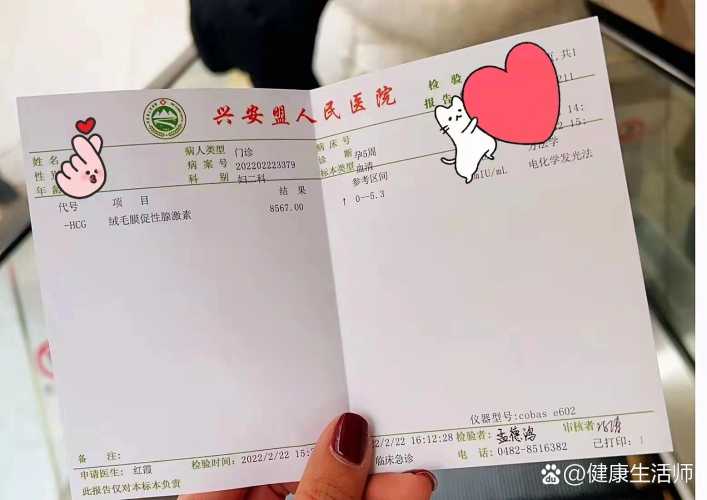 兴安盟人民医院
检验
报告
共1
211
姓名
病人类型 门诊
病床号
14:
性别
病案号 202202223379
诊断 孕5周
15:
年龄
科别 妇二科
标本类型 血清
方法学
代号 项目 结果
参考区间
mIU/mL 电化学发光法
-HCG 绒毛膜促性腺激素 8567.00
↑ 0--5.3
仪器型号:cobas e602
备注:
申请医生: 红霞
检验时间: 2022/2/22 15:
2/22 16:12:28
检验者:
审核者:
此报告仅对本标本负责
临床急诊
电话: 0482-8516382
已打印: 1
@健康生活师